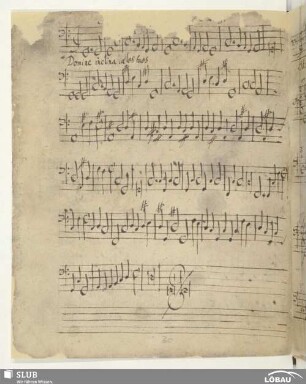 Domine inclina coelos tuos
SLUB
Wir führen Wissen.
LÖBAU